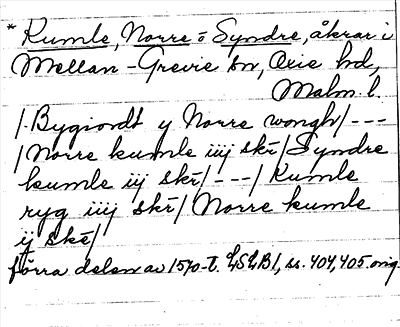 * Kumle, Norre o Syndre, åkrar i
Mellan-Grevie sn, Oxie hd,
Malm. l.
/. Bygiordt y Norre wongh/ ---
/ Norre kumle iiij skr̄/ Syndre
kumle iij skr̄/ --- / Kumle
ryg iiij skr̄/ Norre kumle
ij skr̄/
förra delen av 1570-t. LSLB1, ss. 404, 405. orig.